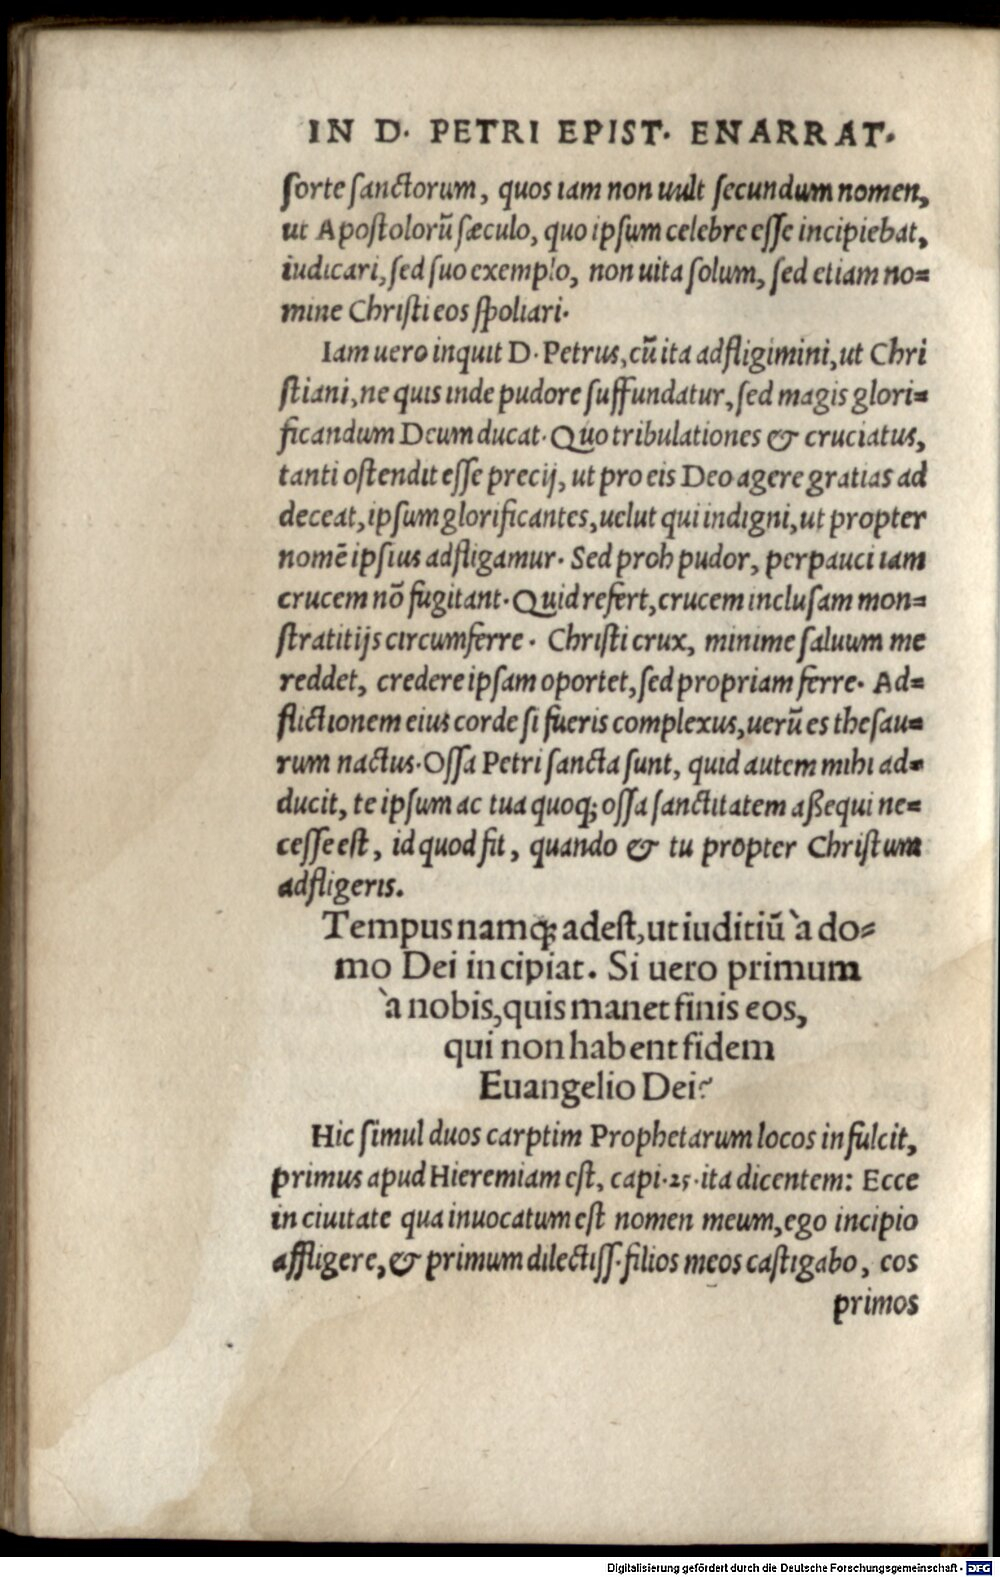 IN D. PETRI EPIST. ENARRAT.
ſorte ſanctorum, quos iam non uult ſecundum nomen,
ut Apoſtolorũ ſæculo, quo ipſum celebre eſſe incipiebat,
iudicari, ſed ſuo exemplo, non uita ſolum, ſed etiam no=
mine Chriſti eos ſpoliari.
Iam uero inquit D. Petrus, cũ ita adfligimini, ut Chri
ſtiani, ne quis inde pudore ſuffundatur, ſed magis glori=
ficandum Deum ducat. Quo tribulationes & cruciatus,
tanti oſtendit eſſe precij, ut pro eis Deo agere gratias ad
deceat, ipſum glorificantes, uelut qui indigni, ut propter
nomẽ ipſius adfligamur. Sed proh pudor, perpauci iam
crucem nõ fugitant. Quid refert, crucem incluſam mon=
ſtratitijs circumferre. Chriſti crux, minime ſaluum me
reddet, credere ipſam oportet, ſed propriam ferre. Ad=
flictionem eius corde ſi fueris complexus, uerũ es theſau=
rum nactus. Oſſa Petri ſancta ſunt, quid autem mihi ad=
ducit, te ipſum ac tua quoq; oſſa ſanctitatem aßequi ne=
ceſſe eſt, id quod fit, quando & tu propter Chriſtum
adfligeris.
Tempus namq; adeſt, ut iuditiũ à do=
mo Dei incipiat. Si uero primum
à nobis, quis manet finis eos,
qui non habent fidem
Euangelio Dei?
Hic ſimul duos carptim Prophetarum locos infulcit,
primus apud Hieremiam eſt, capi. 25. ita dicentem: Ecce
in ciuitate qua inuocatum eſt nomen meum, ego incipio
affligere, & primum dilectiſſ. filios meos caſtigabo, eos
primos
Digitalisierung gefördert durch die Deutsche Forschungsgemeinschaft - DFG